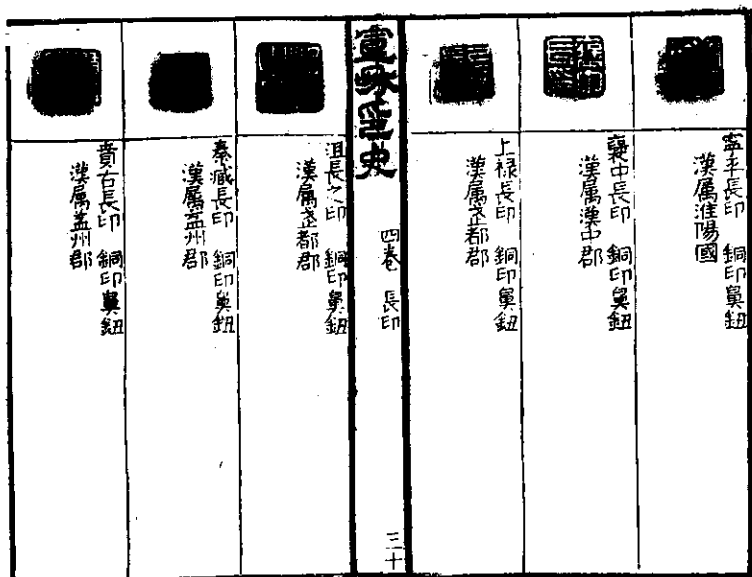 寧平長印 銅印鼻鈕
漢属淮陽國
襃中長印 銅印鼻鈕
漢属漢中郡
上祿長印 銅印鼻鈕
漢属武都郡
宣和印史
四卷 長印
三十
沮長之印 銅印鼻鈕
漢属武都郡
秦臧長印 銅印鼻鈕
漢属益州郡
賁古長印 銅印鼻鈕
漢属益州郡